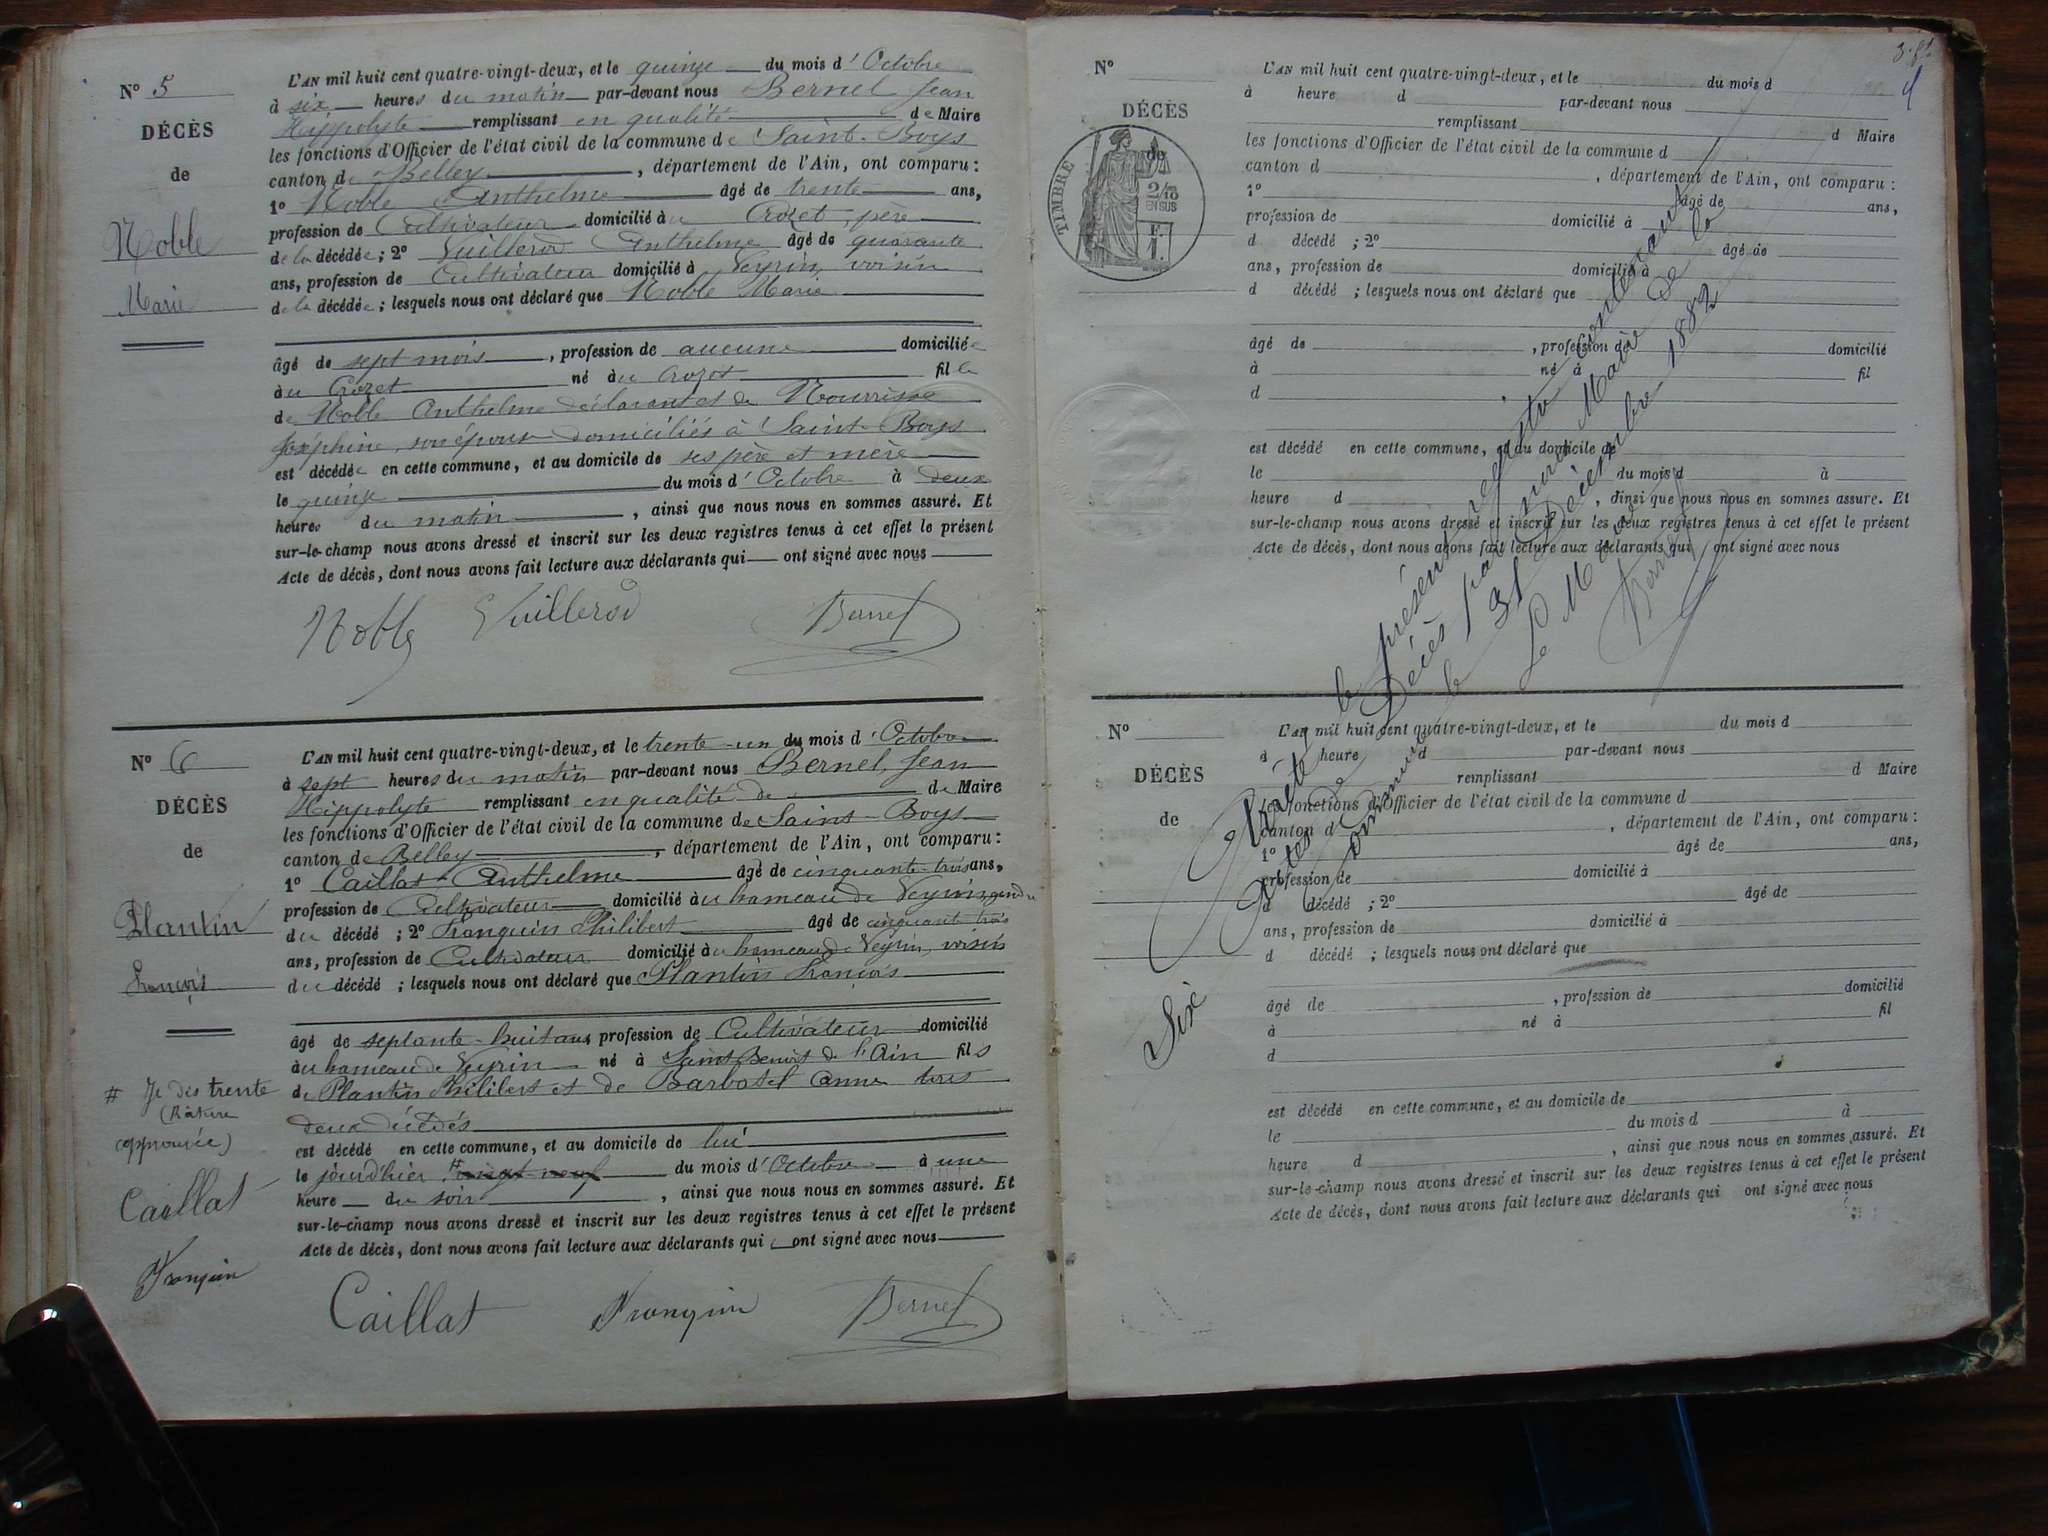 N° 5
DÉCÈS
de
Noble
Marie
L'AN mil huit cent quatre-vingt-deux, et le quinze du mois d'Octobre
à six heures du matin par-devant nous Bernel Jean
Hippolyte remplissant en qualité de Maire
les fonctions d'Officier de l'état civil de la commune de Saint-Boys
canton de Belley, département de l'Ain, ont comparu :
1° Noble Anthelme âgé de trente ans,
profession de Cultivateur domicilié au Crozet, père
de la décédée ; 2° Vuillerod Anthelme âgé de quarante
ans, profession de Cultivateur domicilié à Veyrin, voisin
de la décédée ; lesquels nous ont déclaré que Noble Marie
âgé de sept mois, profession de aucune domiciliée
au Crozet né au Crozet fille
de Noble Anthelme déclarant et de Nourrisse
Joséphine, son épouse domiciliés à Saint-Boys
est décédée en cette commune, et au domicile de ses père et mère
le quinze du mois d'Octobre à deux
heures du matin, ainsi que nous nous en sommes assuré. Et
sur-le-champ nous avons dressé et inscrit sur les deux registres tenus à cet effet le présent
Acte de décès, dont nous avons fait lecture aux déclarants qui ont signé avec nous
Noble Vuillerod Bernel
N° 6
DÉCÈS
de
Plantin
François
L'AN mil huit cent quatre-vingt-deux, et le trente-un du mois d'Octobre
à sept heures du matin par-devant nous Bernel, Jean
Hippolyte remplissant en qualité de de Maire
les fonctions d'Officier de l'état civil de la commune de Saint-Boys
canton de Belley, département de l'Ain, ont comparu :
1° Caillat Anthelme âgé de cinquante-trois ans,
profession de Cultivateur domicilié au hameau de Veyrin, gendre
du décédé ; 2° Franquin Philibert âgé de cinquante trois
ans, profession de Cultivateur domicilié au hameau de Veyrin, voisin
du décédé ; lesquels nous ont déclaré que Plantin François
âgé de septante-huit ans, profession de Cultivateur domicilié
au hameau de Veyrin né à Saint Benoit de l'Ain fils
de Plantin Philibert et de Barbotel Anne tous
deux décédés
est décédé en cette commune, et au domicile de lui
le jourd'hier # vingt-neuf du mois d'Octobre à une
heure du soir, ainsi que nous nous en sommes assuré. Et
sur-le-champ nous avons dressé et inscrit sur les deux registres tenus à cet effet le présent
Acte de décès, dont nous avons fait lecture aux déclarants qui ont signé avec nous
# Je dis trente
(Rature
approuvée)
Caillat
Franquin
Caillat Franquin Bernel
N°
DÉCÈS
de
TIMBRE
2/10
EN SUS
F.
1.
L'AN mil huit cent quatre-vingt-deux, et le du mois d
à heure d par-devant nous
remplissant d Maire
les fonctions d'Officier de l'état civil de la commune d
canton d, département de l'Ain, ont comparu :
1° âgé de ans,
profession de domicilié à
d décédé ; 2° âgé de
ans, profession de domicilié à
d décédé ; lesquels nous ont déclaré que
âgé de, profession de domicilié
à né à fil
d
est décédé en cette commune, et au domicile de
le du mois d à
heure d, ainsi que nous nous en sommes assuré. Et
sur-le-champ nous avons dressé et inscrit sur les deux registres tenus à cet effet le présent
Acte de décès, dont nous avons fait lecture aux déclarants qui ont signé avec nous
Arrêté le présent registre contenant
Six actes de Décès par nous Maire de la
Commune le 31 Décembre 1882
Le Maire
Bernel
N°
DÉCÈS
de
L'AN mil huit cent quatre-vingt-deux, et le du mois d
à heure d par-devant nous
remplissant d Maire
les fonctions d'Officier de l'état civil de la commune d
canton d, département de l'Ain, ont comparu :
1° âgé de ans,
profession de domicilié à
d décédé ; 2° âgé de
ans, profession de domicilié à
d décédé ; lesquels nous ont déclaré que
âgé de, profession de domicilié
à né à fil
d
est décédé en cette commune, et au domicile de
le du mois d à
heure d, ainsi que nous nous en sommes assuré. Et
sur-le-champ nous avons dressé et inscrit sur les deux registres tenus à cet effet le présent
Acte de décès, dont nous avons fait lecture aux déclarants qui ont signé avec nous